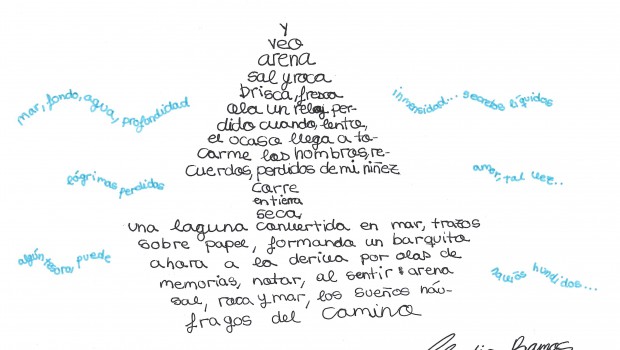 y
veo
arena
sal y roca
brisa, fresca
ola un reloj per-
dido cuando, lento,
el ocaso llega a to-
carme los hombros, re-
cuerdos, perdidos de mi niñez
corre
en tierra
seca
una laguna convertida en mar, trazos
sobre papel, formando un barquito
ahora a la deriva por olas de
memorias, notar, al sentir arena
sal, roca y mar, los sueños náu-
fragos del camino
mar, fondo, agua, profundidad
lágrimas perdidas
algún tesoro puede
inmensidad... secretos líquidos
amor, tal vez..
navíos hundidos...
Ramos